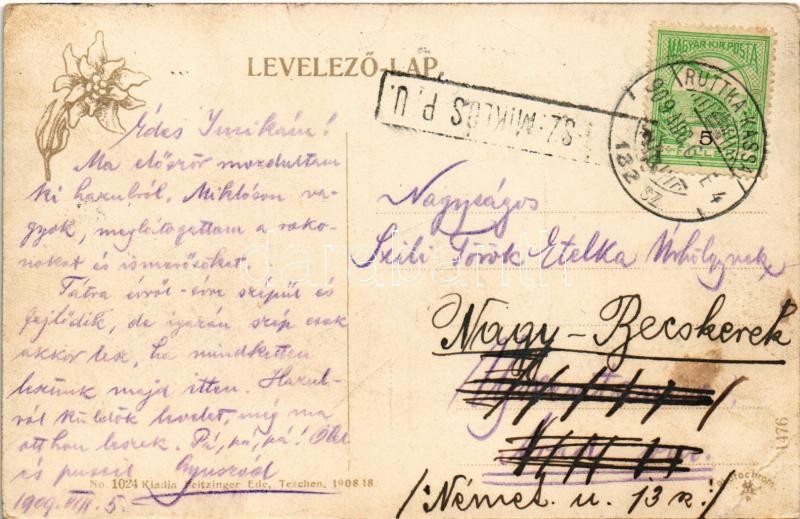 LEVELEZŐ-LAP.
MAGYAR KIR. POSTA
5
RUTTKA-KASSA
909
E 4
182 SZ.
SZ. MIKLÓS P. U.
Édes Inrikám!
Ma először mozdultam
ki hazulról. Miklóson va-
gyok, meglátogattam a roko-
nokat és ismerősöket.
Tátra évről-évre szépül és
fejlődik, de igazán szép csak
akkor lesz, ha mindketten
leszünk majd itten. Hazul-
ról küldök levelet, még ma
otthon leszek. Pá, pá, pá! Ölel
és puszil Gyuszkád
1909. VIII. 5.
Nagyságos
Szili Török Etelka Úrhölgynek
Nagy-Becskerek
/Német u. 13 sz./
No. 1024 Kiadja Feitzinger Ede, Teschen, 1908 18
1476
Photochrom
darabanth